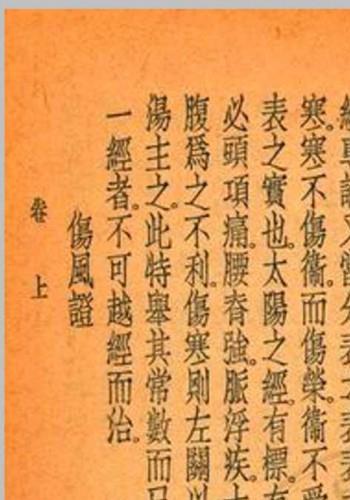 經專論又當分表之表
寒寒不傷衞而傷榮衞不受
表之實也太陽之經有標
必頭項痛腰脊強脈浮疾
腹爲之不利傷寒則左關以
湯主之此特舉其常數而
一經者不可越經而治
傷風證
卷上